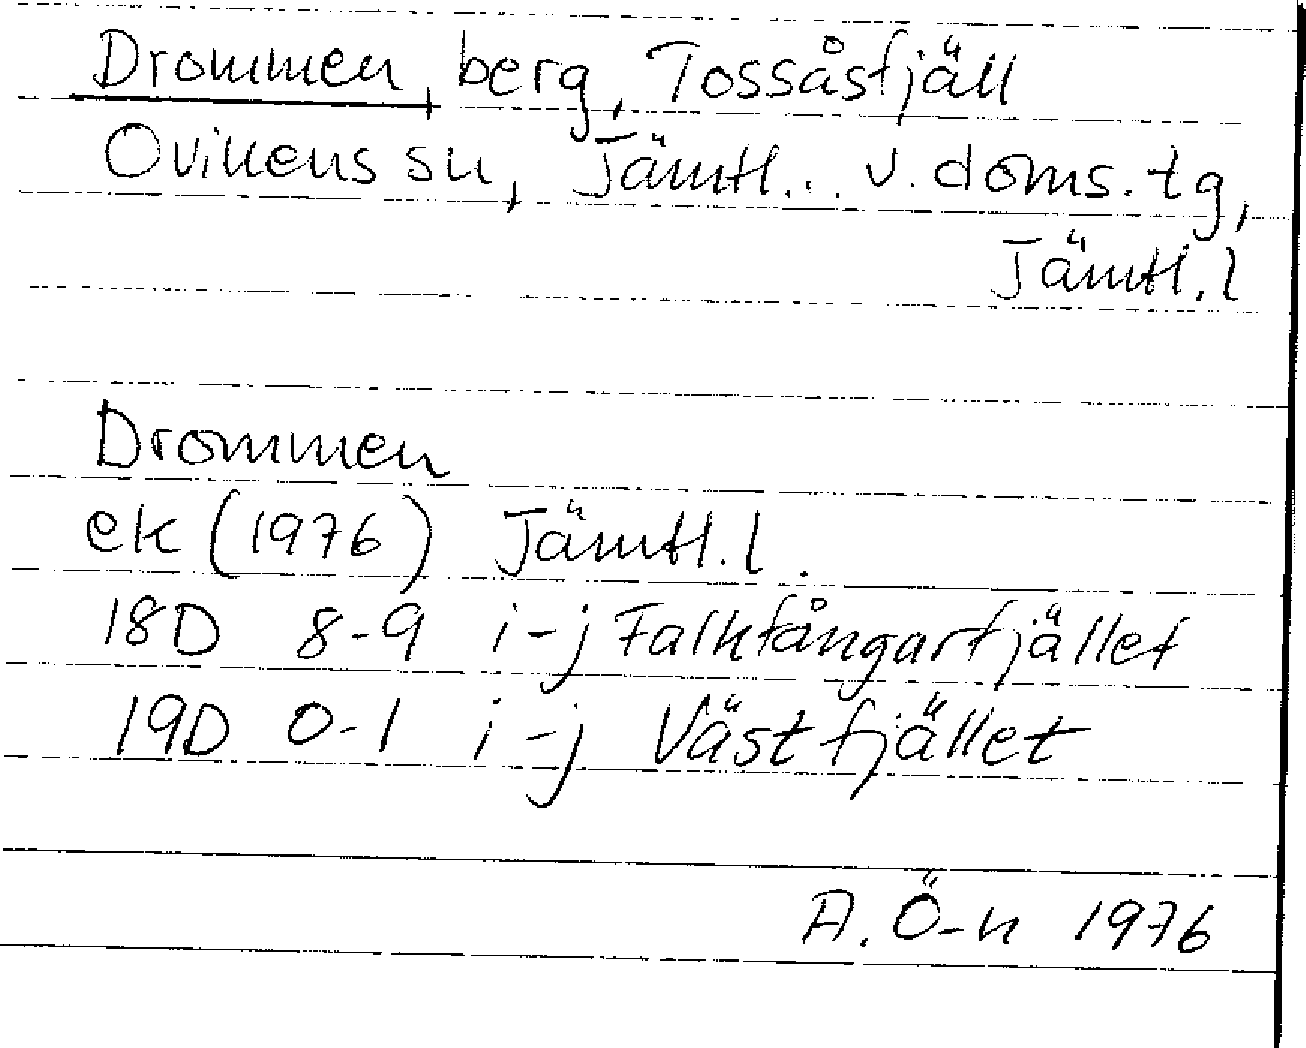 Drommen, berg, Tossåsfjäll
Ovikens sn, Jämtl... v. doms. tg,
Jämtl. l
Drommen
ek (1976) Jämtl. l.
18D 8-9 i-j Falkfångarfjället
19D 0-1 i-j Västfjället
A. Ö-n 1976